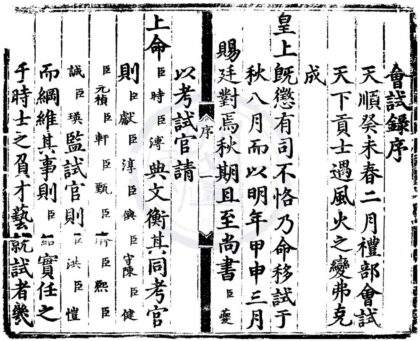 會試錄序
天順癸未春二月禮部會試
天下貢士遇風火之變弗克
成
皇上旣懲有司不恪乃命移試于
秋八月而以明年甲申三月
賜廷對焉秋期且至尚書臣夔
序
一
以考試官請
上命臣時臣溥典文衡其同考官
則臣獻臣淳臣儼臣守陳臣健
臣元禎臣軒臣甄臣臣熙臣
誠臣瑛監試官則臣洪臣愷
而綱維其事則臣實任之
于時士之負才藝就試者幾